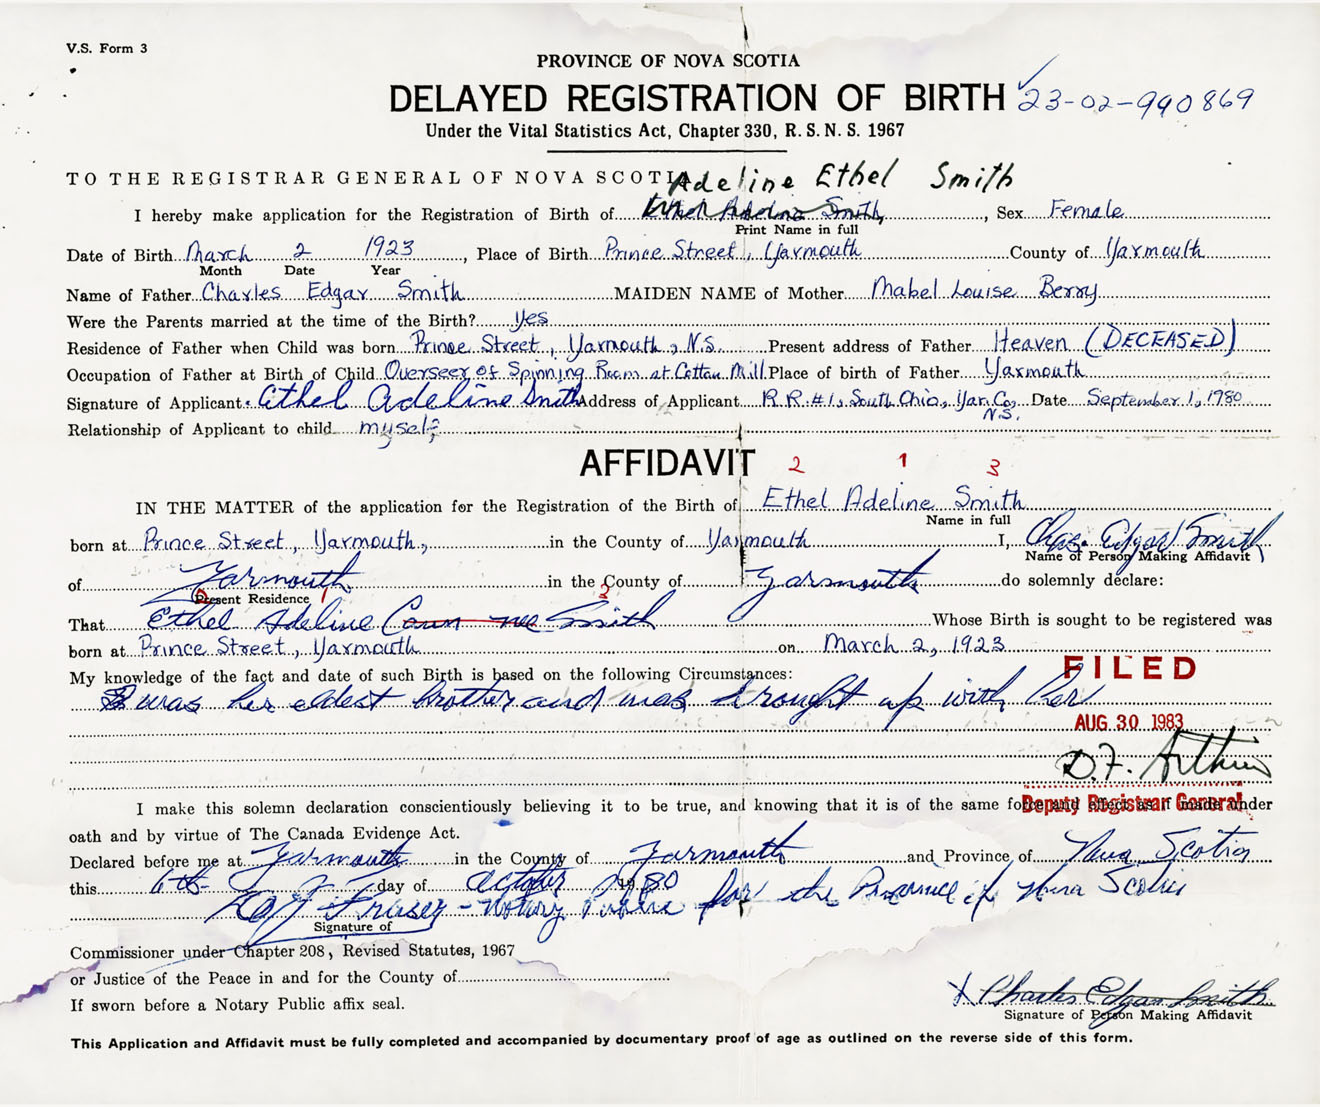 V.S. Form 3
PROVINCE OF NOVA SCOTIA
DELAYED REGISTRATION OF BIRTH 23-02-990869
Under the Vital Statistics Act, Chapter 330, R.S.N.S. 1967
TO THE REGISTRAR GENERAL OF NOVA SCOTIA
Adeline Ethel Smith
I hereby make application for the Registration of Birth of Ethel Adeline Smith, Sex Female
Print Name in full
Date of Birth March 2 1923, Place of Birth Prince Street, Yarmouth County of Yarmouth
Month Date Year
Name of Father Charles Edgar Smith MAIDEN NAME of Mother Mabel Louise Berry
Were the Parents married at the time of the Birth? yes
Residence of Father when Child was born Prince Street, Yarmouth, N.S. Present address of Father Heaven (DECEASED)
Occupation of Father at Birth of Child Overseer of Spinning Room at Cotton Mill Place of birth of Father Yarmouth
Signature of Applicant Ethel Adeline Smith Address of Applicant R.R. #1, South Ohio, Yar. Co. N.S. Date September 1, 1980
Relationship of Applicant to child myself
AFFIDAVIT 2 1 3
IN THE MATTER of the application for the Registration of the Birth of Ethel Adeline Smith
Name in full
born at Prince Street, Yarmouth, in the County of Yarmouth I, Chas. Edgar Smith
Name of Person Making Affidavit
of Yarmouth in the County of Yarmouth do solemnly declare:
Present Residence 2 1 3
That Ethel Adeline nee Smith Whose Birth is sought to be registered was
born at Prince Street, Yarmouth on March 2, 1923
My knowledge of the fact and date of such Birth is based on the following Circumstances:
FILED
I was her eldest brother and was brought up with her
AUG 30 1983
D.F. Arthur
I make this solemn declaration conscientiously believing it to be true, and knowing that it is of the same force and effect as if made under
Deputy Registrar General
oath and by virtue of The Canada Evidence Act.
Declared before me at Yarmouth in the County of Yarmouth and Province of Nova Scotia
this 6th day of October 1980
Fraser - Notary Public for the Province of Nova Scotia
Signature of
Commissioner under Chapter 208, Revised Statutes, 1967
or Justice of the Peace in and for the County of
If sworn before a Notary Public affix seal.
X Charles Edgar Smith
Signature of Person Making Affidavit
This Application and Affidavit must be fully completed and accompanied by documentary proof of age as outlined on the reverse side of this form.